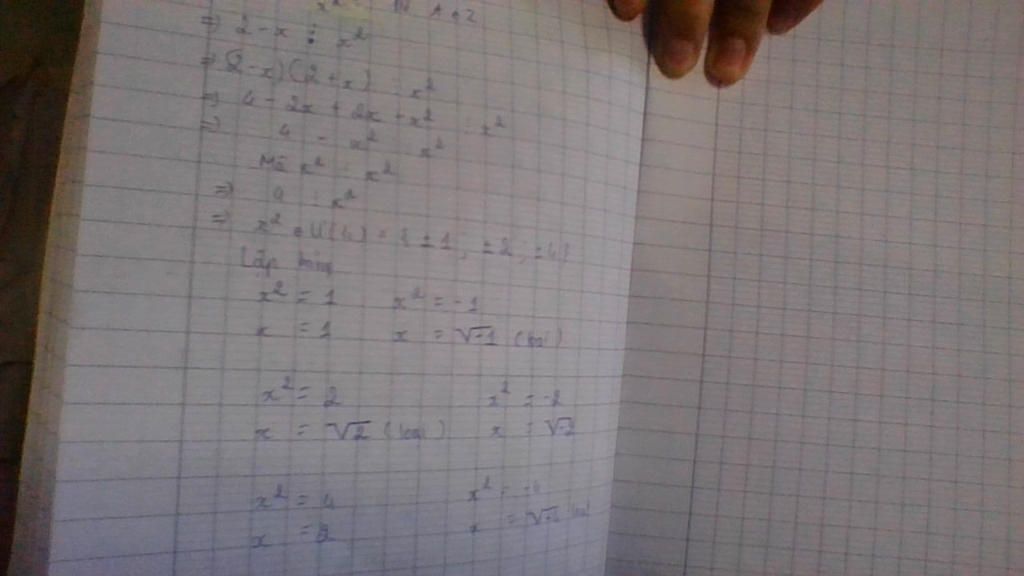 x² A ∈ Z
=> 2 - x ⋮ x²
=> (2 - x)(2 + x) ⋮ x²
=> 4 - 2x + 2x + x² ⋮ x²
=> 4 - x² ⋮ x²
Mà x² ⋮ x²
=> 4 ⋮ x²
=> x² ∈ Ư(4) = { ±1 ; ±2 ; ±4}
Lập bảng
x² = 1 x² = -1
x = 1 x = √-1 (loại)
x² = 2 x² = -2
x = √2 (loại) x = √-2
x² = 4 x² = -4
x = 2 x = √-4 (loại)